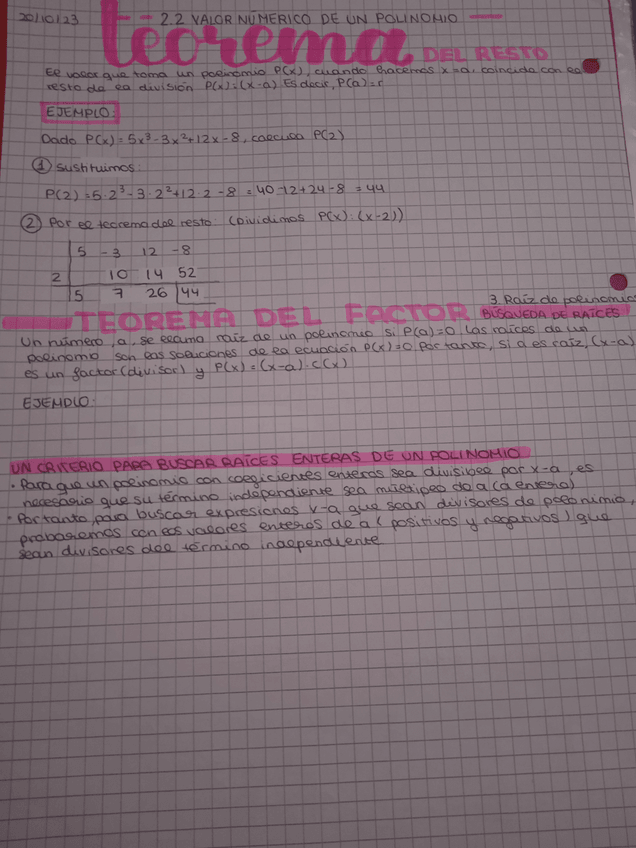 20/10/23
2.2 VALOR NUMERICO DE UN POLINOMIO
teorema DEL RESTO
El valor que toma un polinomio P(x), cuando hacemos x=a, coincide con el
resto de la división P(x):(x-a) Es decir, P(a)=r
EJEMPLO:
Dado P(x)=5x³-3x²+12x-8, calcula P(2)
① Sustituimos:
P(2)=5·2³-3·2²+12·2-8=40-12+24-8=44
② Por el teorema del resto: (Dividimos P(x):(x-2))
5 -3 12 -8
2 10 14 52
5 7 26 44
3. Raíz de polinomios
TEOREMA DEL FACTOR BÚSQUEDA DE RAÍCES
Un número, a, se llama raíz de un polinomio si P(a)=0. Las raíces de un
polinomio son las soluciones de la ecuación P(x)=0 Por tanto, si a es raíz, (x-a)
es un factor (divisor) y P(x)=(x-a)·C(x)
EJEMPLO:
UN CRITERIO PARA BUSCAR RAÍCES ENTERAS DE UN POLINOMIO
· Para que un polinomio con coeficientes enteros sea divisible por x-a, es
necesario que su término independiente sea múltiplo de a (a entero)
· Por tanto, para buscar expresiones x-a que sean divisores de polinomio,
probaremos con los valores enteros de a (positivos y negativos) que
sean divisores del término independiente